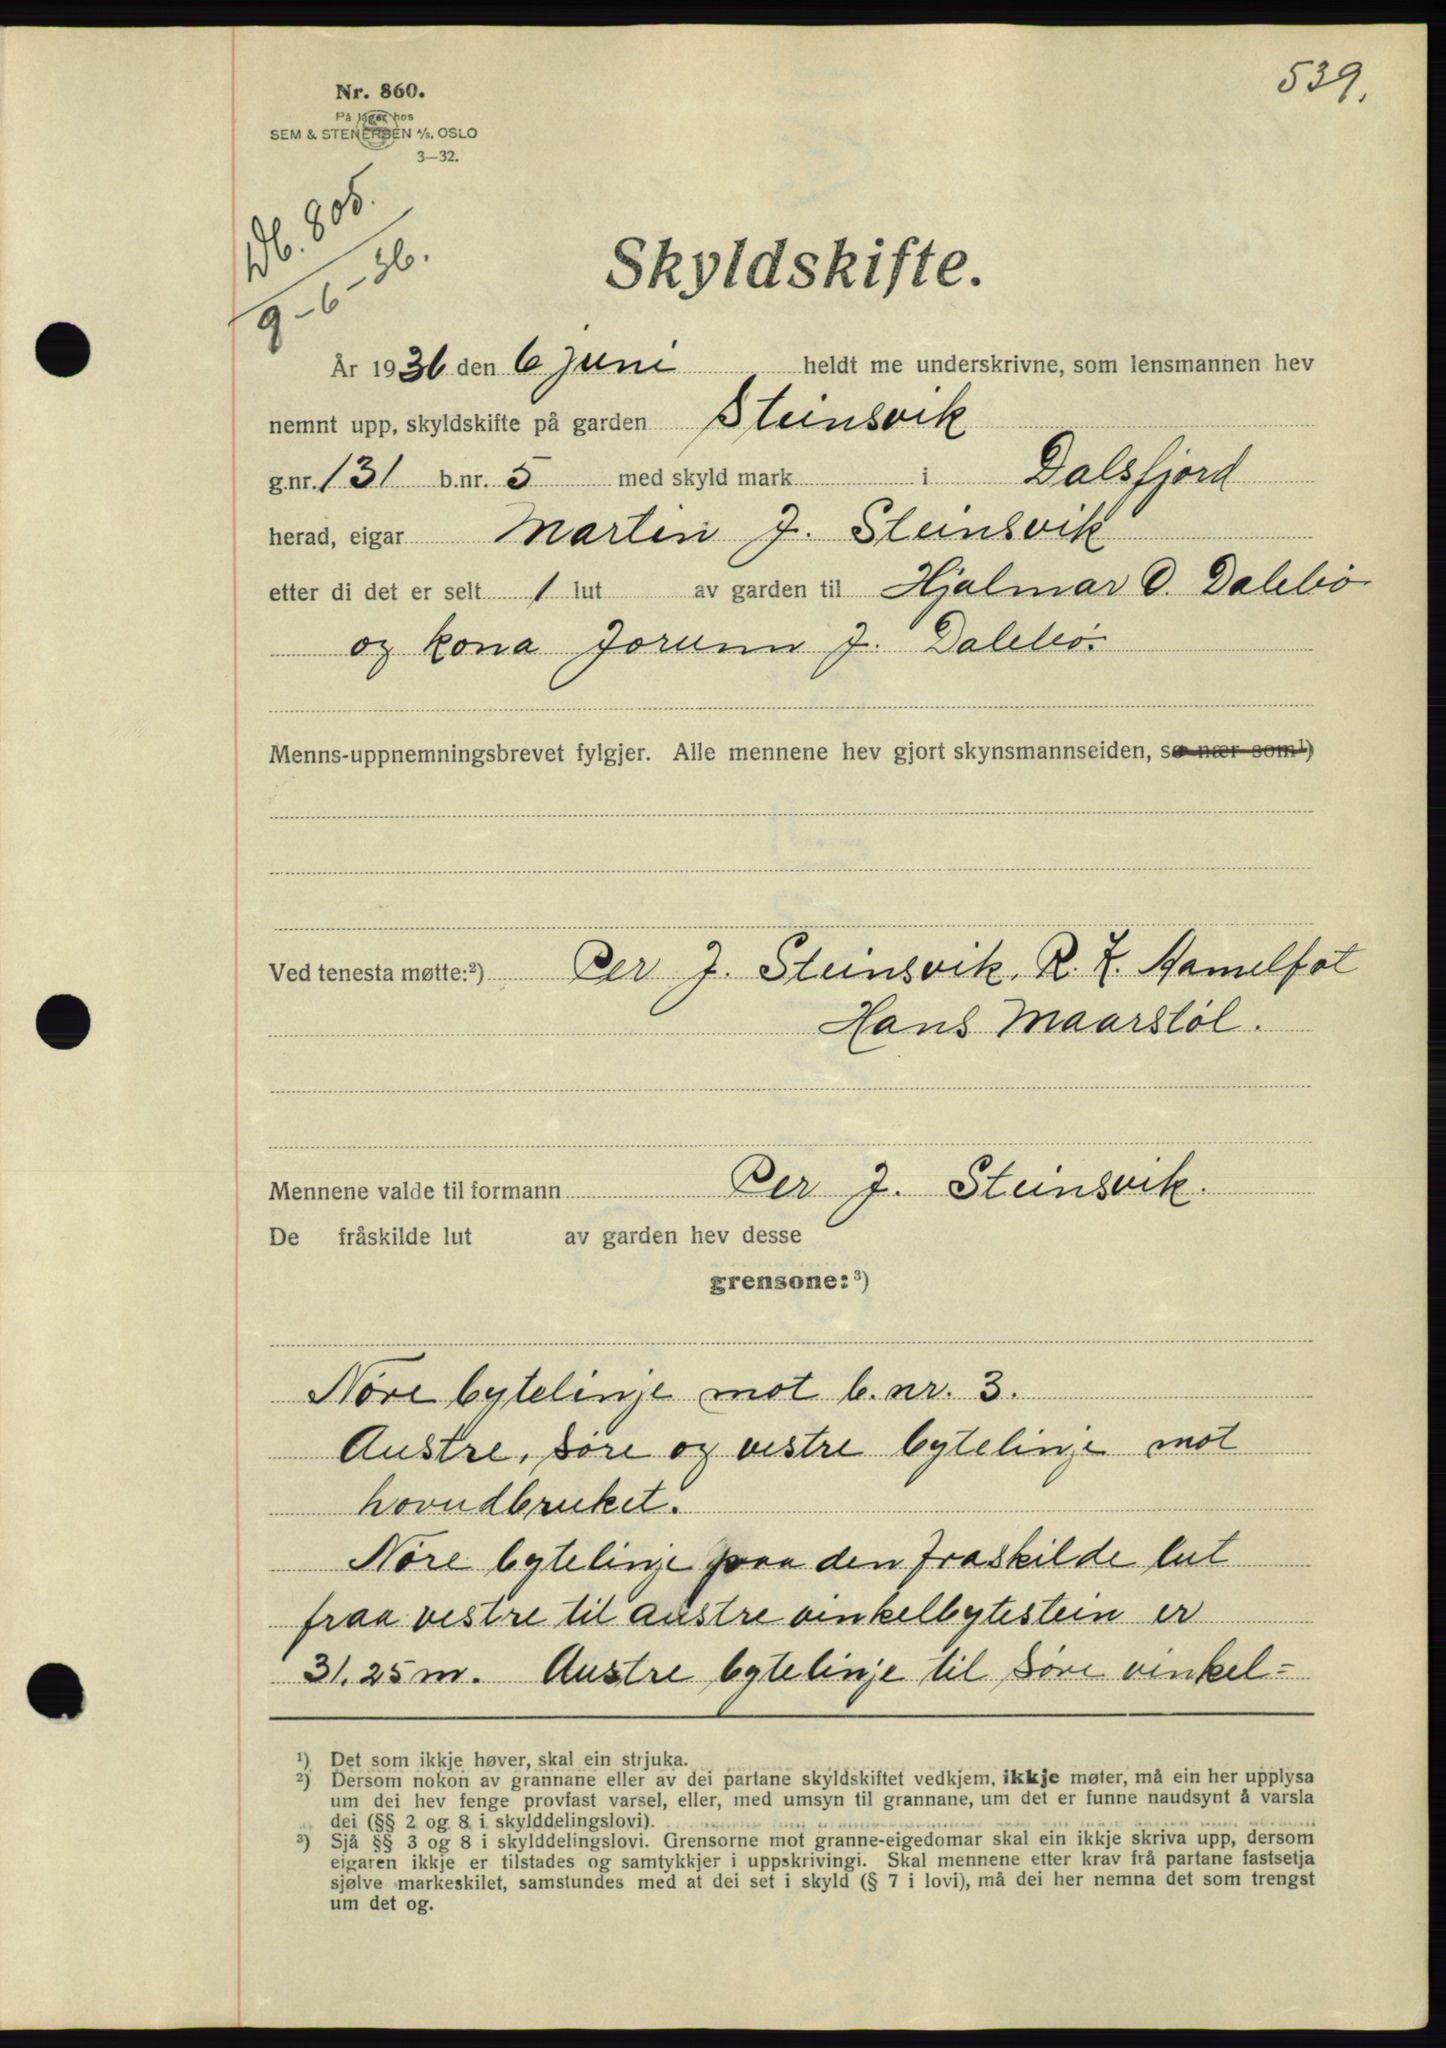 539.
Nr. 860.
På lager hos
SEM & STENERSEN A/S. OSLO
3—32.
Db. 805.
9-6-36.
Skyldskifte.
År 1936 den 6 juni heldt me underskrivne, som lensmannen hev
nemnt upp, skyldskifte på garden Steinsvik
g.nr. 131 b.nr. 5 med skyld mark i Dalsfjord
herad, eigar Martin J. Steinsvik
etter di det er selt 1 lut av garden til Hjalmar O. Dalebø
og kona Jorunn J. Dalebø.
Menns-uppnemningsbrevet fylgjer. Alle mennene hev gjort skynsmannseiden, so nær som¹)
Ved tenesta møtte:²) Per J. Steinsvik, R. K. Aamelfot
Hans Maarstøl.
Mennene valde til formann Per J. Steinsvik.
De fråskilde lut av garden hev desse
grensone:³)
Nøre bytelinje mot b.nr. 3.
Austre, søre og vestre bytelinje mot
hovudbruket.
Nøre bytelinje paa den fraskilde lut
fraa vestre til austre vinkelbytestein er
31.25 m. Austre bytelinje til søre vinkel=
¹) Det som ikkje høver, skal ein strjuka.
²) Dersom nokon av grannane eller av dei partane skyldskiftet vedkjem, ikkje møter, må ein her upplysa
um dei hev fenge provfast varsel, eller, med umsyn til grannane, um det er funne naudsynt å varsla
dei (§§ 2 og 8 i skylddelingslovi).
³) Sjå §§ 3 og 8 i skylddelingslovi. Grensorne mot granne-eigedomar skal ein ikkje skriva upp, dersom
eigaren ikkje er tilstades og samtykkjer i uppskrivingi. Skal mennene etter krav frå partane fastsetja
sjølve markeskilet, samstundes med at dei set i skyld (§ 7 i lovi), må dei her nemna det som trengst
um det og.